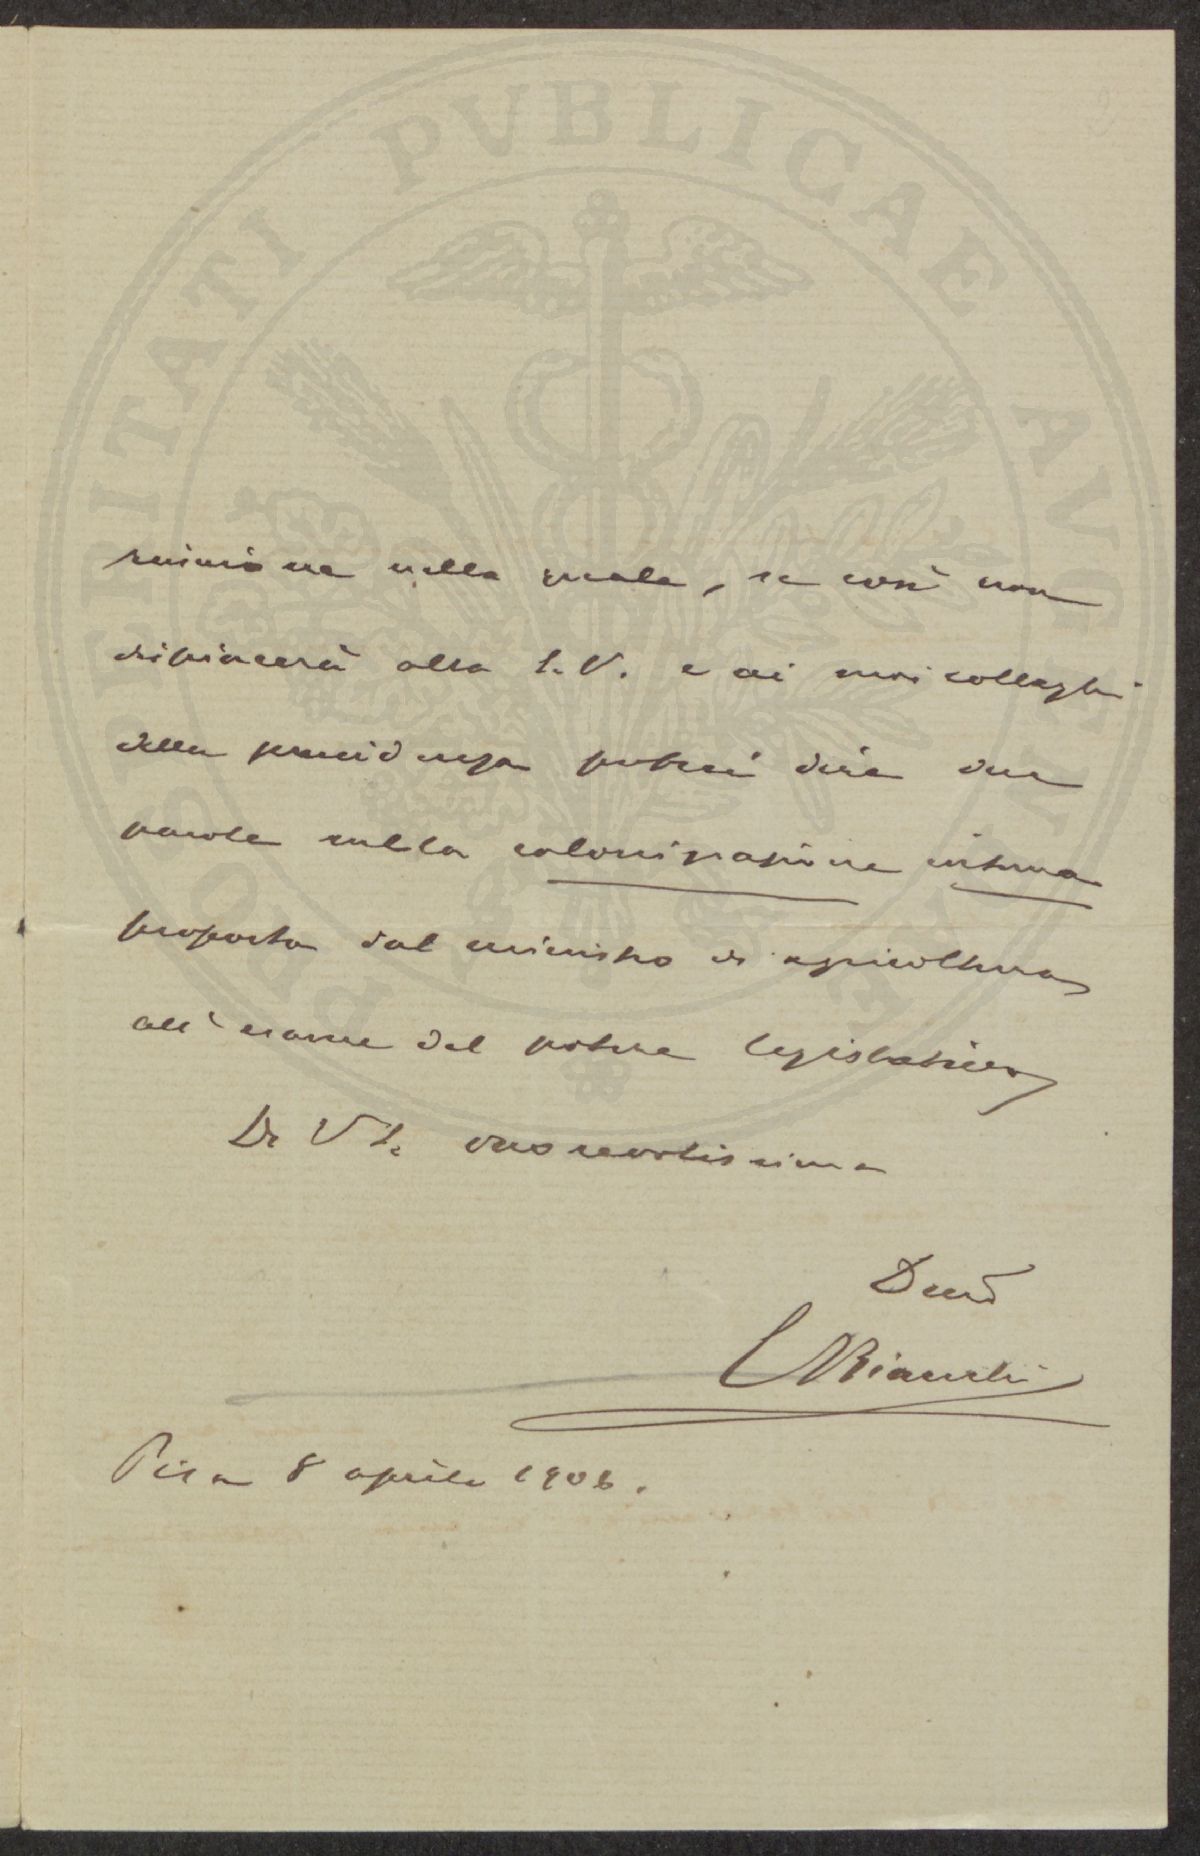 riunione nella quale, se così non
dispiacerà alla S. V. e ai suoi colleghi
della presidenza potrei dire due
parole sulla colonizzazione interna
proposta dal ministro di agricoltura
all'esame del potere legislativo
Di V S. onorevolissima
Devo
Bianchi
Pisa 8 aprile 1906.
PROSPERITATI PVBLICAE AVGENDAE